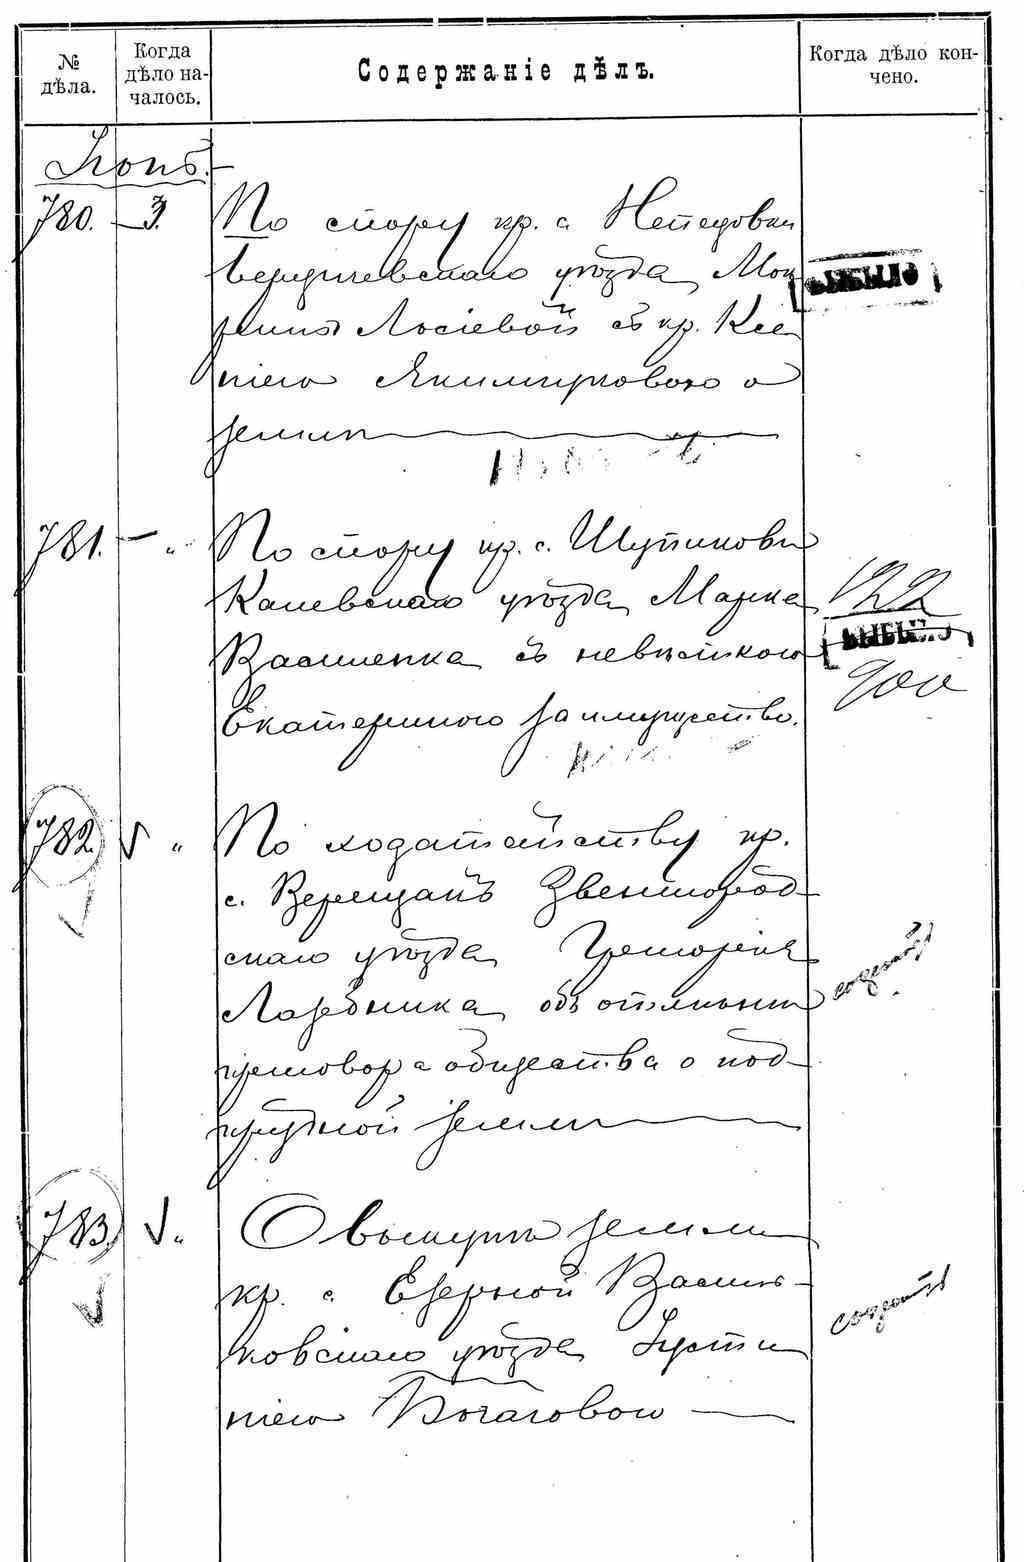 № дѣла.
Когда дѣло на-
чалось.
Содержаніе дѣлъ.
Когда дѣло кон-
чено.
780. 3. По спору кр. с. Непедовки
Бердичевскаго уѣзда Мок
рины Лосіевой съ кр. Ксе
ніею Якимчуковою о
землѣ
781. — „ По спору кр. с. Шупиковъ
Каневскаго уѣзда Марка
Василенка съ невѣсткою
Екатериною за имущество.
ВЫБЫЛО
122
ВЫБЫЛО
900
782. „ По ходатайству кр.
с. Верещакъ Звенигород-
скаго уѣзда Григорія
Лазебника объ отмѣнѣ
приговора общества о под-
усадебной землѣ
783. „ О выкупѣ земли
кр. с. Езерной Василь-
ковскаго уѣзда Іусти
ніею Богатовою